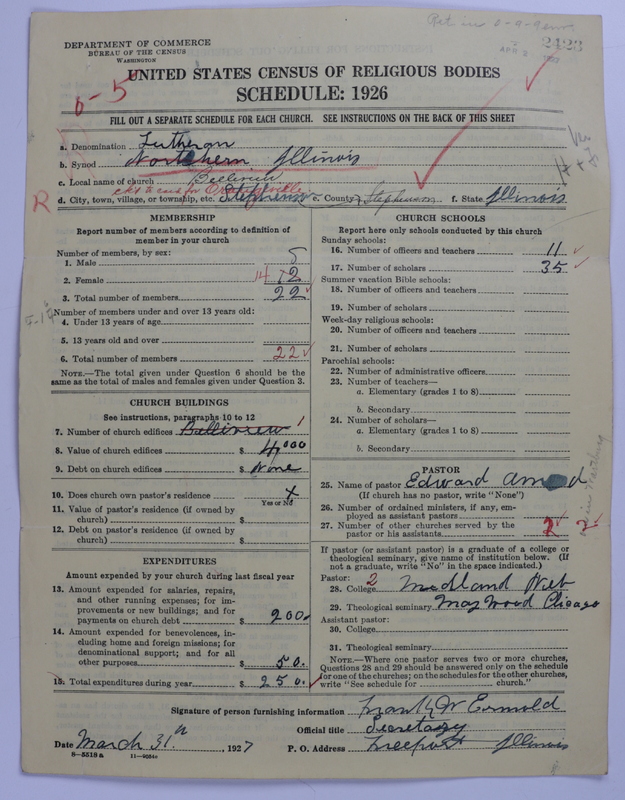 Ret in
DEPARTMENT OF COMMERCE
BUREAU OF THE CENSUS
WASHINGTON
APR 2
2423
UNITED STATES CENSUS OF RELIGIOUS BODIES
0-5
SCHEDULE: 1926
FILL OUT A SEPARATE SCHEDULE FOR EACH CHURCH. SEE INSTRUCTIONS ON THE BACK OF THIS SHEET
a. Denomination Lutheran
b. Synod Northern Illinois
c. Local name of church
R
d. City, town, village, or township, etc. Stephenson e. County Stephenson f. State Illinois
MEMBERSHIP
Report number of members according to definition of
member in your church
Number of members, by sex:
1. Male
2. Female 14
3. Total number of members 22
Number of members under and over 13 years old:
4. Under 13 years of age
5. 13 years old and over
6. Total number of members 22
NOTE.—The total given under Question 6 should be the
same as the total of males and females given under Question 3.
CHURCH BUILDINGS
See instructions, paragraphs 10 to 12
7. Number of church edifices 1
8. Value of church edifices $ 4000
9. Debt on church edifices $ None
10. Does church own pastor's residence x
Yes or No
11. Value of pastor's residence (if owned by
church) $
12. Debt on pastor's residence (if owned by
church) $
EXPENDITURES
Amount expended by your church during last fiscal year
13. Amount expended for salaries, repairs,
and other running expenses; for im-
provements or new buildings; and for
payments on church debt $ 200.
14. Amount expended for benevolences, in-
cluding home and foreign missions; for
denominational support; and for all
other purposes $ 50.
15. Total expenditures during year $ 250.
CHURCH SCHOOLS
Report here only schools conducted by this church
Sunday schools:
16. Number of officers and teachers 11
17. Number of scholars 35
Summer vacation Bible schools:
18. Number of officers and teachers
19. Number of scholars
Week-day religious schools:
20. Number of officers and teachers
21. Number of scholars
Parochial schools:
22. Number of administrative officers
23. Number of teachers—
a. Elementary (grades 1 to 8)
b. Secondary
24. Number of scholars—
a. Elementary (grades 1 to 8)
b. Secondary
PASTOR
25. Name of pastor Edward
(If church has no pastor, write "None")
26. Number of ordained ministers, if any, em-
ployed as assistant pastors
27. Number of other churches served by the
pastor or his assistants 2 2
If pastor (or assistant pastor) is a graduate of a college or
theological seminary, give name of institution below. (If
not a graduate, write "No" in the space indicated.)
Pastor: 2
28. College Midland Neb
29. Theological seminary Maywood Chicago
Assistant pastor:
30. College
31. Theological seminary
NOTE.—Where one pastor serves two or more churches,
Questions 28 and 29 should be answered only on the schedule
for one of the churches; on the schedules for the other churches,
write "See schedule for church."
Signature of person furnishing information Frank W Ermold
Official title Secretary
Date March 31st, 1927 P. O. Address Freeport Illinois
8—5518a 11—9054